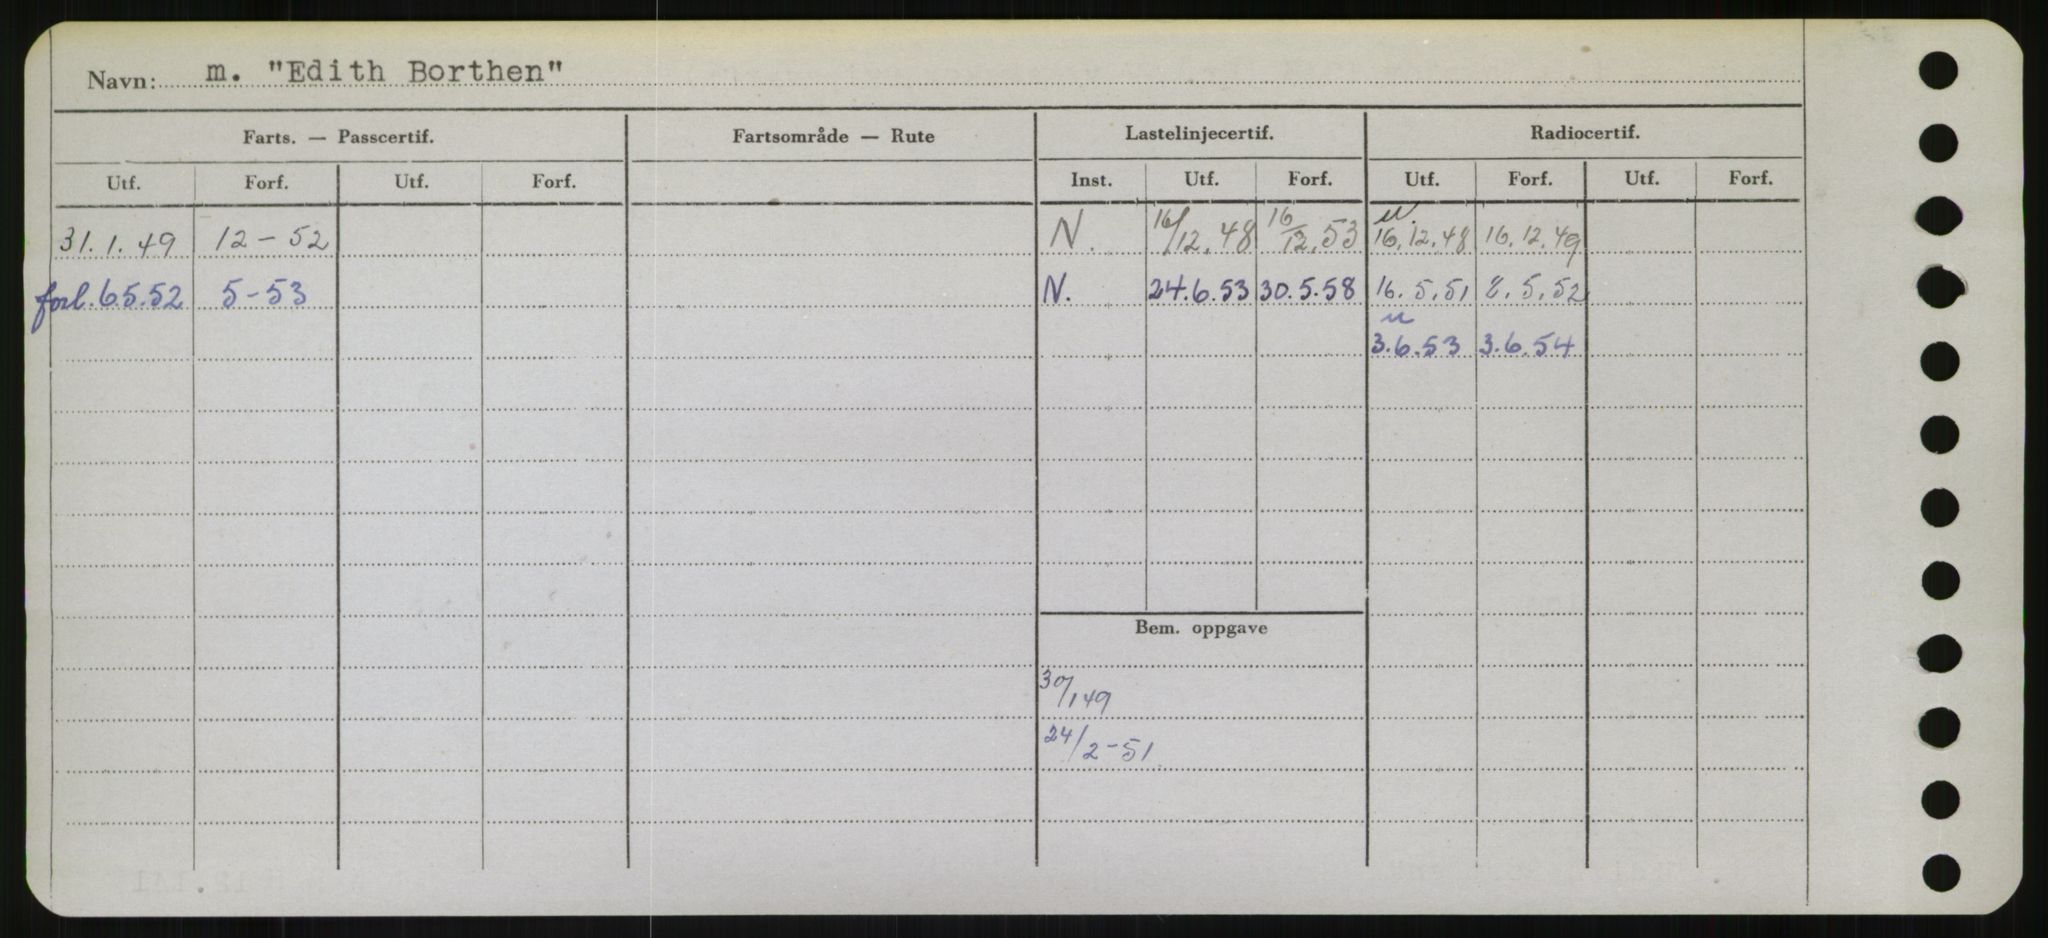 Navn: m. "Edith Borthen"
Farts. — Passcertif. Fartsområde — Rute Lastelinjecertif. Radiocertif.
Utf. Forf. Utf. Forf. Inst. Utf. Forf. Utf. Forf. Utf. Forf.
31.1.49 12-52 N. 16/12.48 16/12.53 16.12.48 16.12.49
forl. 6.5.52 5-53 N. 24.6.53 30.5.58 16.5.51 8.5.52
3.6.53 3.6.54
Bem. oppgave
30/1 49
24/2-51